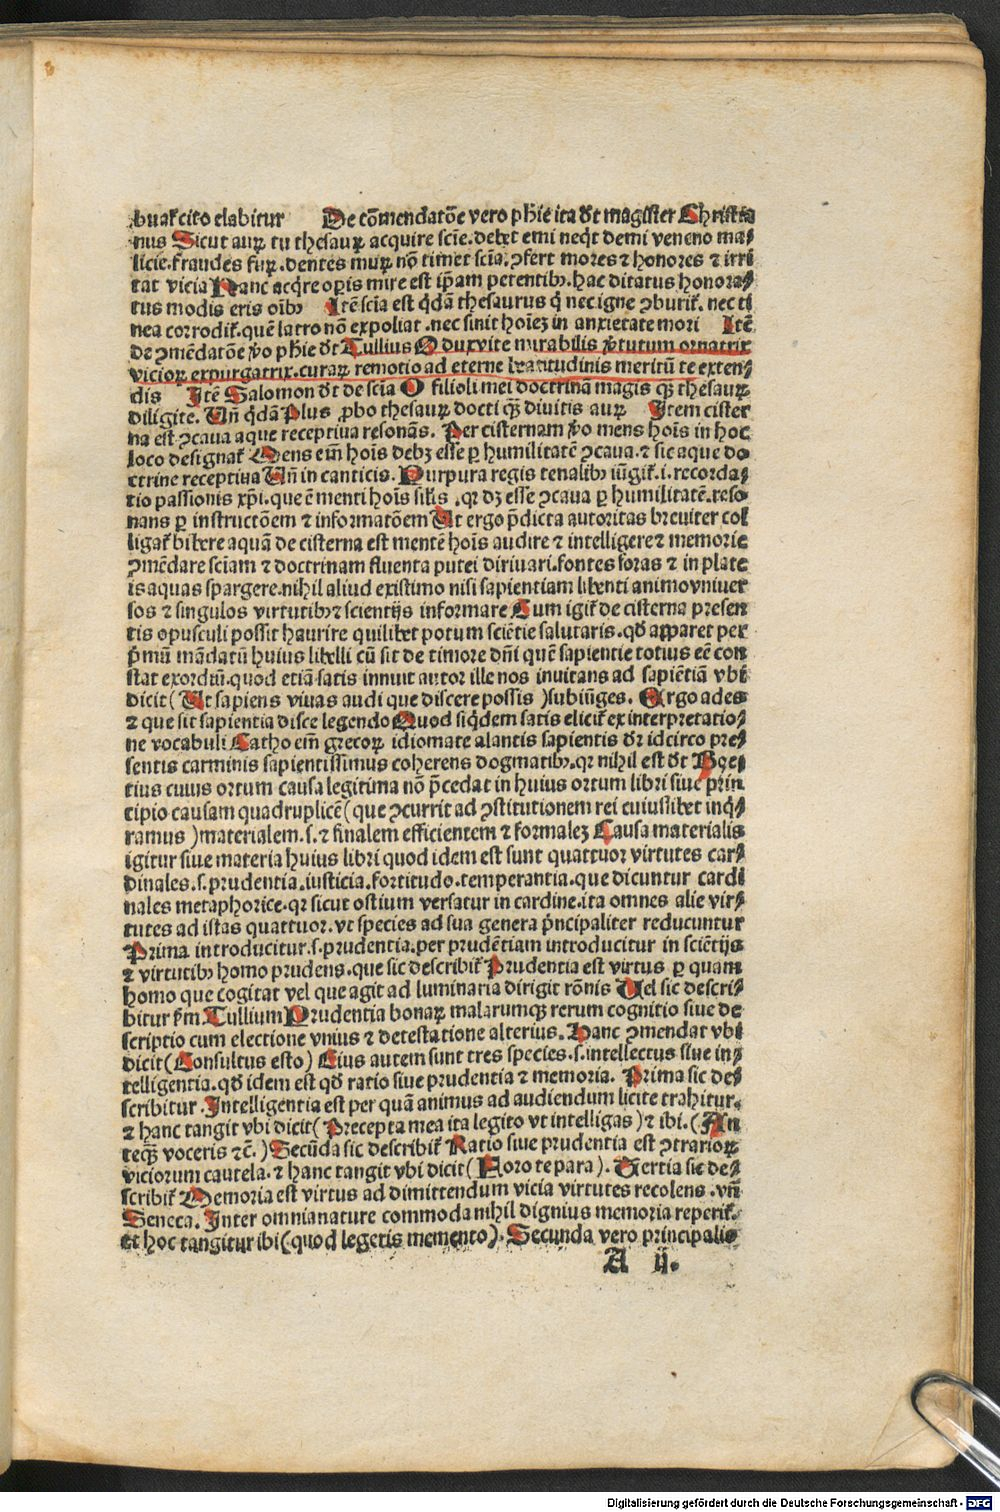 buat᷑ cito elabitur De cōmendatōe vero phīe ita dt magister Christia
nus Sicut auꝝ tu thesauꝝ acquire scīe. debet emi neqt demi veneno ma⸗
licie. fraudes fuꝝ. dentes muꝝ nō timet scīa. ꝯfert mores ⁊ honores ⁊ irri
tat vicia Hanc acqre oꝑis mire est ip̄am petentibꝰ. hac ditatus honora⸗
tus modis eris oīb᷒ Itē scīa est qdā thesaurus q nec igne ꝯburit᷑. nec ti
nea corrodit᷑. quē latro nō expoliat. nec sinit hoīeꝫ in anxietate mori Itē
de ꝯmēdatōe v̄o phīe dt Tullius O dux vite mirabilis v̄tutum ornatrix
vicioꝝ expurgatrix. curaꝝ remotio ad eterne beatitudinis meritū te exten⸗
dis Itē Salomon dt de scīa O filioli mei doctrinā magis qꝫ thesauꝝ
diligite. Vn̄ qdā Plus ꝓbo thesauꝝ docti qꝫ divitis auꝝ Item cister
na est ꝯcaua aque receptiua resonās. Per cisternam v̄o mens hoīs in hoc
loco designat᷑ Mens em̄ hoīs debꝫ esse ꝑ humilitatē ꝯcaua. ⁊ sic aque do⸗
ctrine receptiua Vn̄ in canticis. Purpura regis tenalib᷒ iūgit᷑. i. recorda⸗
tio passionis xp̄i. que ē menti hoīs sil̄is. qr dꝫ esse ꝯcaua ꝑ humilitatē. reso⸗
nans ꝑ instructōem ⁊ informatōem Ut ergo p̄dicta autoritas breuiter col
ligat᷑ bibere aquā de cisterna est mentē hoīs audire ⁊ intelligere ⁊ memorie
ꝯmēdare scīam ⁊ doctrinam fluenta putei diriuari. fontes foras ⁊ in plate
is aquas spargere. nihil aliud existimo nisi sapientiam libenti animo vniuer
sos ⁊ singulos virtutib᷒ ⁊ scientijs informare Cum igit᷑ de cisterna presen
tis opusculi possit haurire quilibet potum sciētie salutaris. qd apparet per
p̄mū mādatū huius libelli cū sit de timore dn̄i quē sapientie totius eē con
stat exordiū. quod etiā satis innuit autor ille nos inuitans ad sapiētiā vbi
dicit (Ut sapiens viuas audi que discere possis) subiūges. Ergo ades
⁊ que sit sapientia disce legendo Quod siqdem satis elicit᷑ ex interpretatio⸗
ne vocabuli Catho em̄ grecoꝝ idiomate alantis sapientis dr idcirco pre⸗
sentis carminis sapientissimus coherens dogmatib᷒. qr nihil est dt Boe⸗
tius cuius ortum causa legitima nō p̄cedat in huius ortum libri siue prin
cipio causam quadruplicē (que ꝯcurrit ad ꝯstitutionem rei cuiuslibet inq⸗
ramus) materialem. s. ⁊ finalem efficientem ⁊ formaleꝫ Causa materialis
igitur siue materia huius libri quod idem est sunt quattuor virtutes car⸗
dinales. s. prudentia. iusticia. fortitudo. temperantia. que dicuntur cardi
nales metaphorice. qr sicut ostium versatur in cardine. ita omnes alie vir⸗
tutes ad istas quattuor. vt species ad sua genera p̄ncipaliter reducuntur
Prima introducitur. s. prudentia. per prudētiam introducitur in sciētijs
⁊ virtutib᷒ homo prudens. que sic describit᷑ Prudentia est virtus ꝑ quam
homo que cogitat vel que agit ad luminaria dirigit rōnis Vel sic descri⸗
bitur s̄m Tullium Prudentia bonaꝝ malarumqꝫ rerum cognitio siue de
scriptio cum electione vnius ⁊ detestatione alterius. Hanc ꝯmendat vbi
dicit (Consultus esto) Eius autem sunt tres species. s. intellectus siue in⸗
telligentia. qd idem est qd ratio siue prudentia ⁊ memoria. Prima sic de⸗
scribitur. Intelligentia est per quā animus ad audiendum licite trahitur.
⁊ hanc tangit vbi dicit (Precepta mea ita legito vt intelligas) ⁊ ibi. (An
teqꝫ voceris ⁊c̄.) Secūda sic describit᷑ Ratio siue prudentia est ꝯtrarioꝝ
viciorum cautela. ⁊ hanc tangit vbi dicit (Foro te para). Tertia sic de⸗
scribit᷑ Memoria est virtus ad dimittendum vicia virtutes recolens. vn̄
Seneca. Inter omnia nature commoda nihil dignius memoria reperit᷑.
et hoc tangitur ibi (quod legeris memento). Secunda vero principalis
A ij.
Digitalisierung gefördert durch die Deutsche Forschungsgemeinschaft - DFG